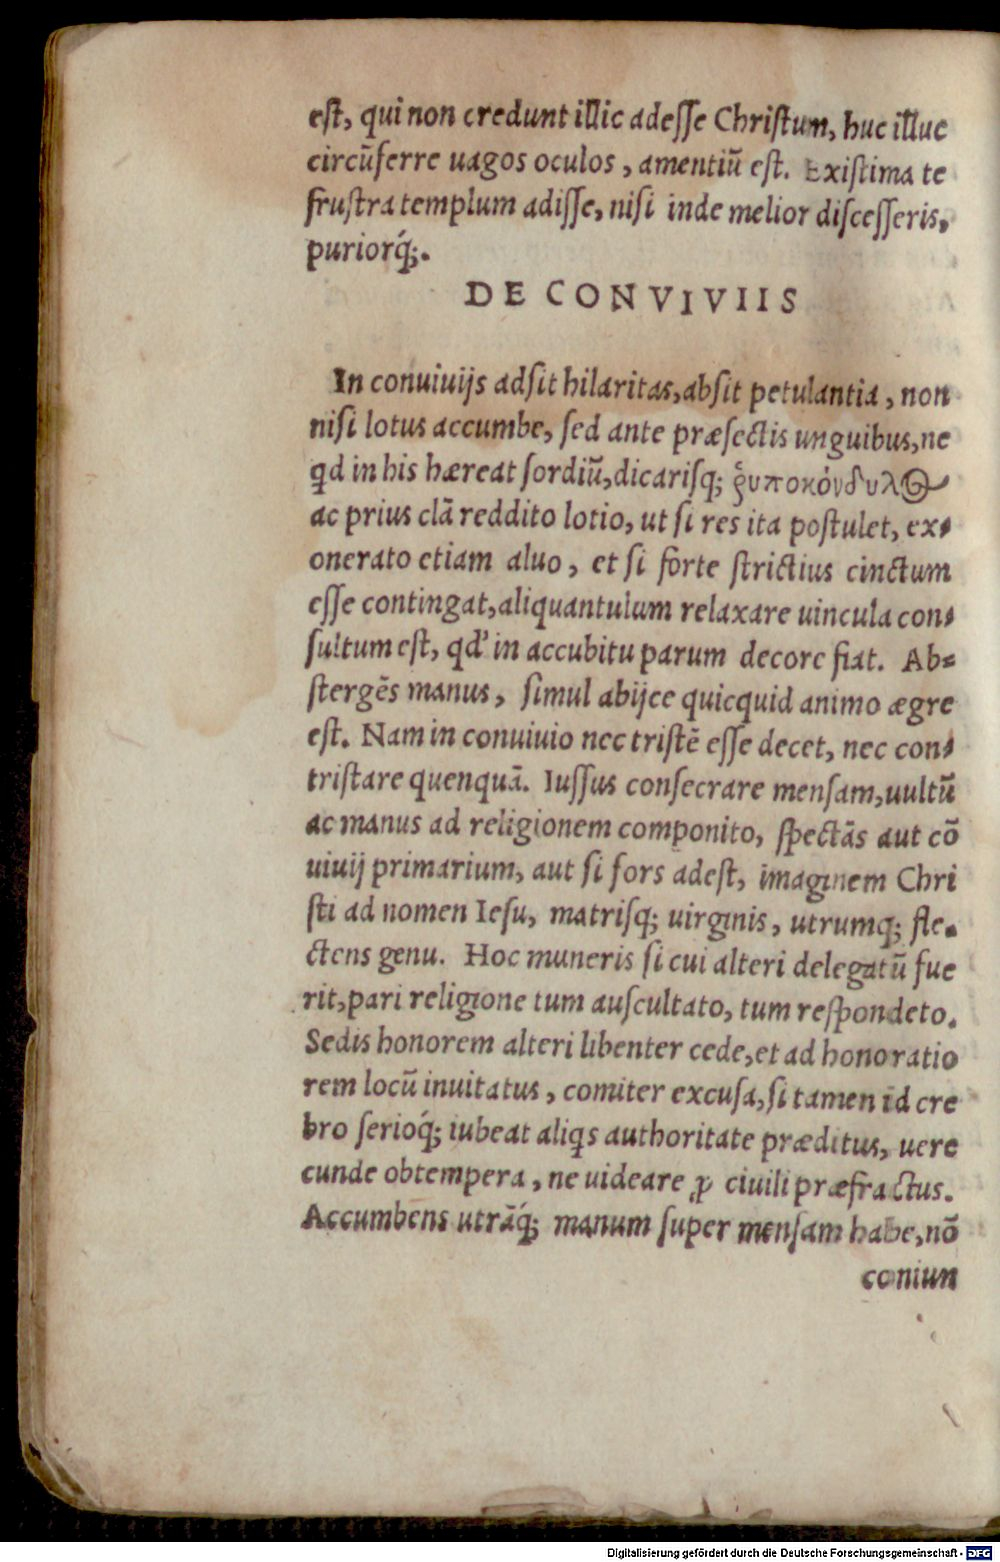 est, qui non credunt illic adesse Christum, huc illuc
circũferre uagos oculos, amentiũ est. Existima te
frustra templum adisse, nisi inde melior discesseris,
puriorq́;.
DE CONVIVIIS
In conuiuijs adsit hilaritas, absit petulantia, non
nisi lotus accumbe, sed ante præsectis unguibus, ne
qd in his hæreat sordiũ, dicarisq; ῥυποκόνδυλος
ac prius clã reddito lotio, ut si res ita postulet, ex⸗
onerato etiam aluo, et si forte strictius cinctum
esse contingat, aliquantulum relaxare uincula con⸗
sultum est, qd' in accubitu parum decore fiat. Ab⸗
stergẽs manus, simul abijce quicquid animo ægre
est. Nam in conuiuio nec tristẽ esse decet, nec con⸗
tristare quenquã. Iussus consecrare mensam, uultũ
ac manus ad religionem componito, spectãs aut cõ
uiuij primarium, aut si fors adest, imaginem Chri
sti ad nomen Iesu, matrisq; uirginis, utrumq; fle⸗
ctens genu. Hoc muneris si cui alteri delegatũ fue
rit, pari religione tum auscultato, tum respondeto.
Sedis honorem alteri libenter cede, et ad honoratio
rem locũ inuitatus, comiter excusa, si tamen id cre
bro serioq́; iubeat aliqs authoritate præditus, uere
cunde obtempera, ne uideare ꝓ ciuili præfractus.
Accumbens utrãq́; manum super mensam habe, nõ
coniun
Digitalisierung gefördert durch die Deutsche Forschungsgemeinschaft - DFG